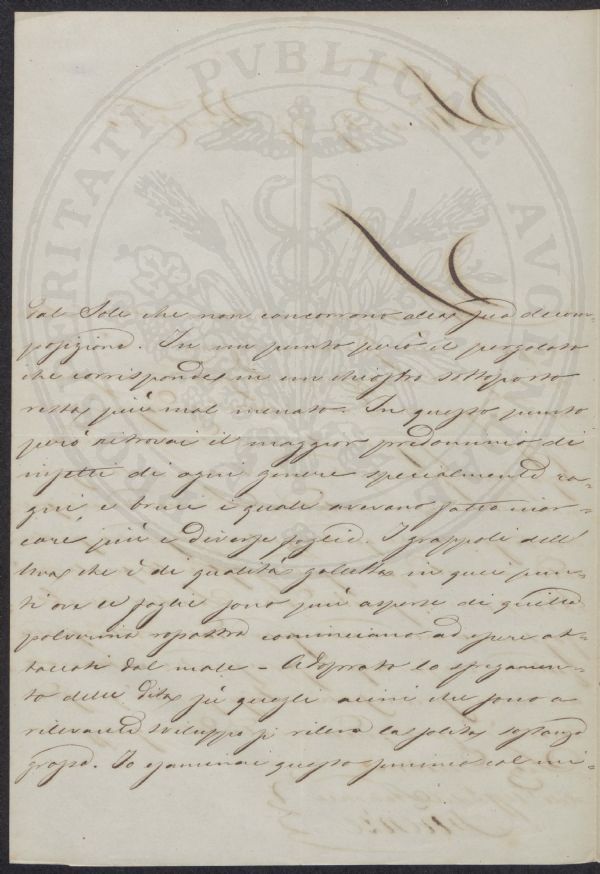 VBERITATI PVBLICAE AVGENDAE
dal Sole che non concorrono alla sua decom-
posizione. In un punto però il pergolato
che corrisponde in un chiostro sottoposto
resta più mal menato. In questo punto
però ritrovai il maggior predominio di
insetti di ogni genere specialmente ra-
gni e bruci i quali avevano fatto
più e diverse foglie. I grappoli dell'
Uva che è di qualità galletta in quei pun-
ti ove le foglie sono più asperse di quella
polverina cominciano ad essere at-
taccati dal male - Adoprato lo spregamen-
to delle dita su quegli acini che sono a
rilevante sviluppo si rileva la solita sostanza
grassa. Io esaminai questo pruino col mi-